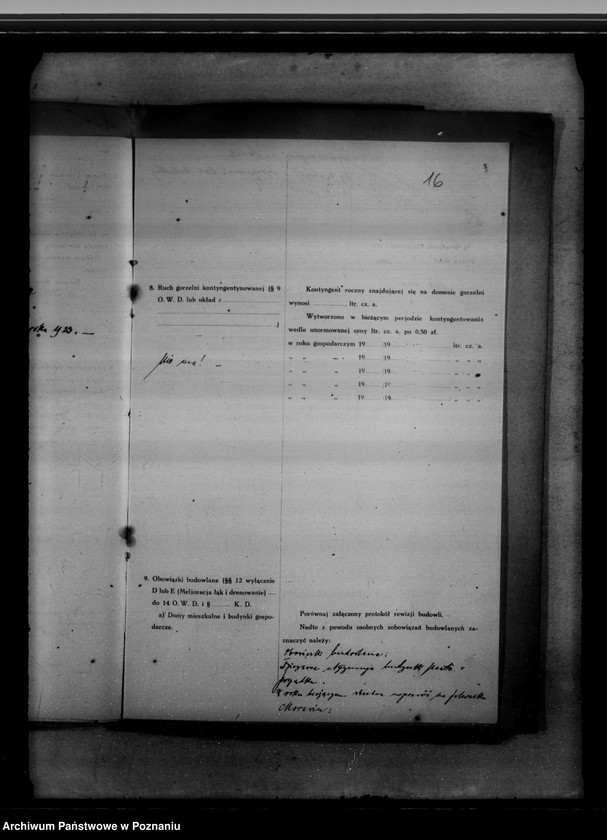 16
8. Ruch gorzelni kontyngentynowanej (§ 9
O. W. D. lub układ z
.)
Nie ma! —
roku 1923. —
Kontyngent roczny znajdującej się na domenie gorzelni
wynosi ltr. cz. a.
Wytworzono w bieżącym perjodzie kontyngentowania
wedle unormowanej ceny ltr. cz. a. po 0,50 zł.
w roku gospodarczym 19 /19 ltr. cz. a.
„ „ „ 19 /19 „ „ „
„ „ „ 19 /19 „ „ „
„ „ „ 19 /19 „ „ „
„ „ „ 19 /19 „ „ „
9. Obowiązki budowlane (§§ 12 wyłącznie
D lub E (Meljoracja łąk i drenowanie) —
do 14 O. W. D. i § K. D.
a) Domy mieszkalne i budynki gospo-
darcze.
Porównaj załączony protokół rewizji budowli. —
Nadto z powodu osobnych zobowiązań budowlanych za-
znaczyć należy:
Obowiązki budowlane:
budynki
w roku bieżącym na folwarku
Archiwum Państwowe w Poznaniu